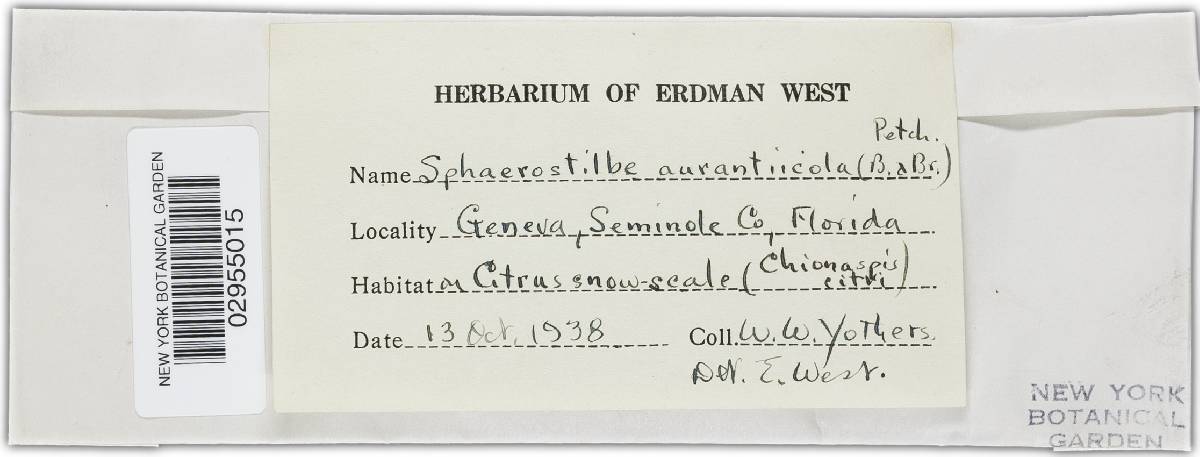 HERBARIUM OF ERDMAN WEST
Petch.
Name Sphaerostilbe aurantiicola (B. & Br.)
Locality Geneva, Seminole Co, Florida
Habitat on Citrus snow-scale (Chionaspis citri)
Date 13 Oct. 1938 Coll. W. W. Yothers.
Det. E. West.
NEW YORK BOTANICAL GARDEN
02955015
NEW YORK
BOTANICAL
GARDEN